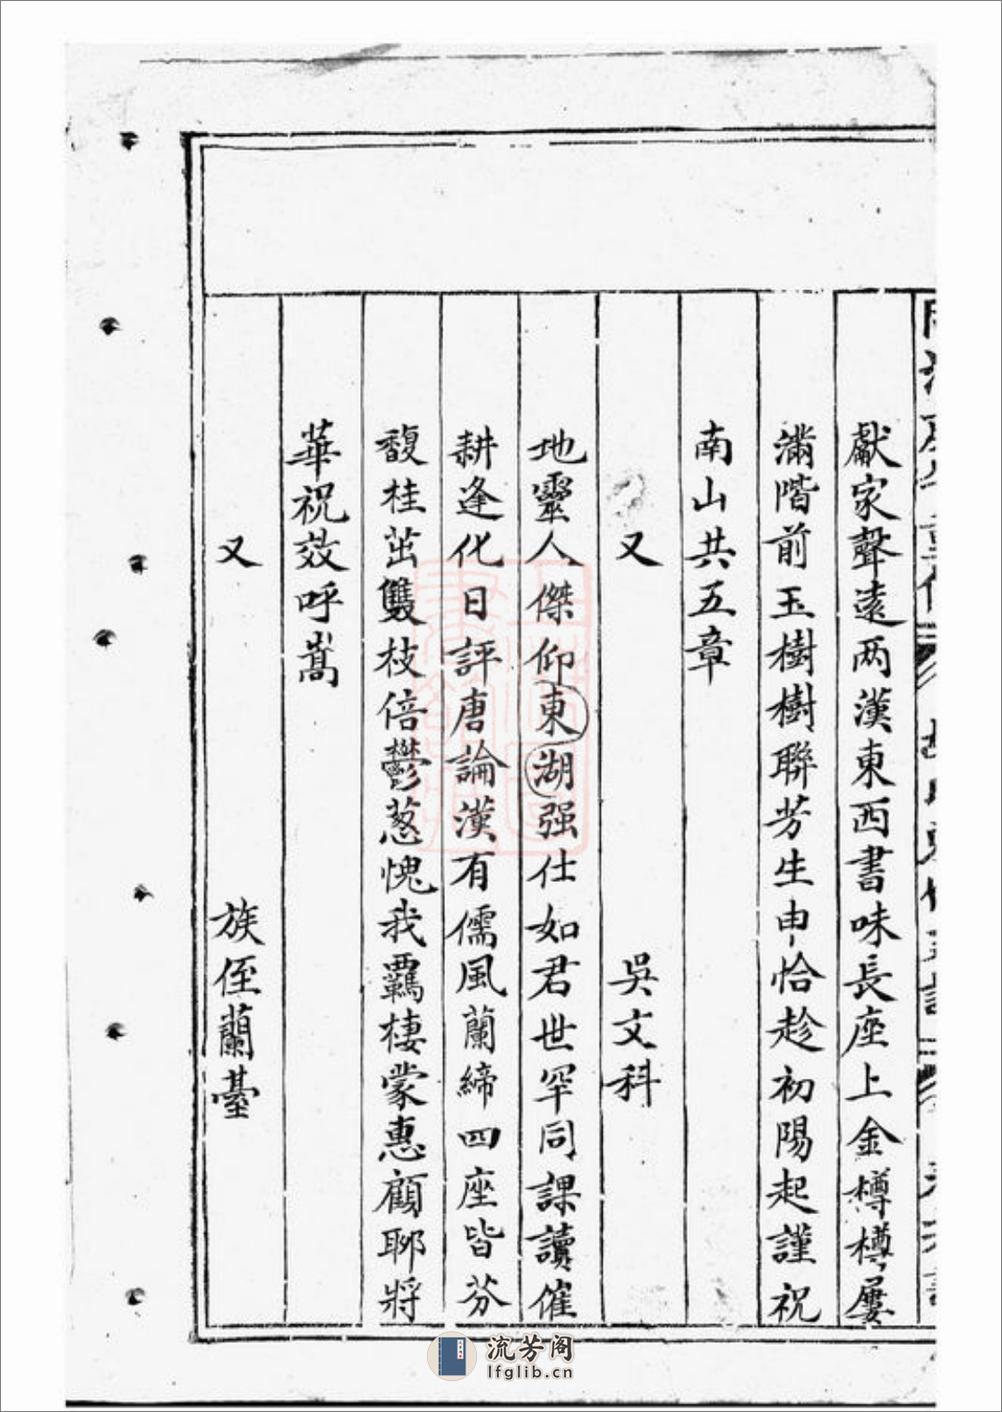 獻家聲遠两漢東西書味長座上金樽樽屢
滿階前玉樹樹聯芳生申恰趁初陽起謹祝
南山共五章
又 吳文科
地靈人傑仰東湖强仕如君世罕同課讀催
耕逢化日評唐論漢有儒風蘭締四座皆芬
馥桂茁雙枝倍鬱葱愧我羈棲蒙惠顧聊將
華祝效呼嵩
又 族侄蘭臺
流芳阁
lfglib.cn